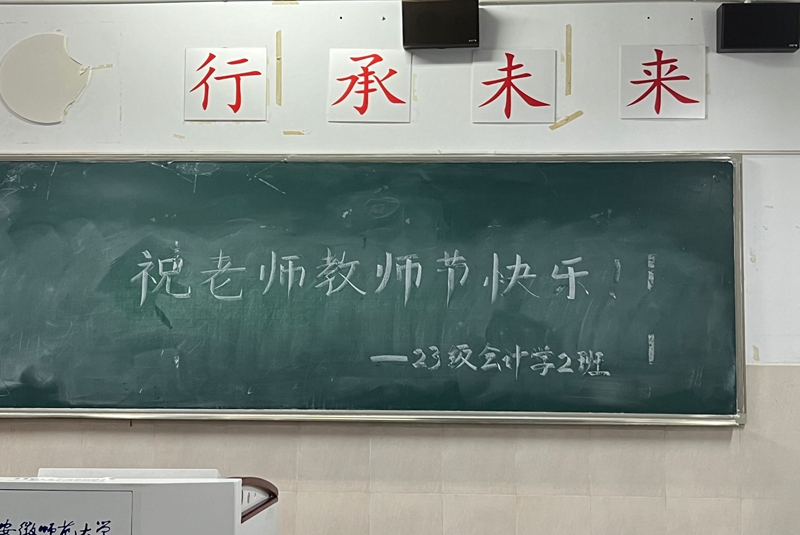 行承未来
祝老师教师节快乐!
—23级会计学2班
安徽师范大学